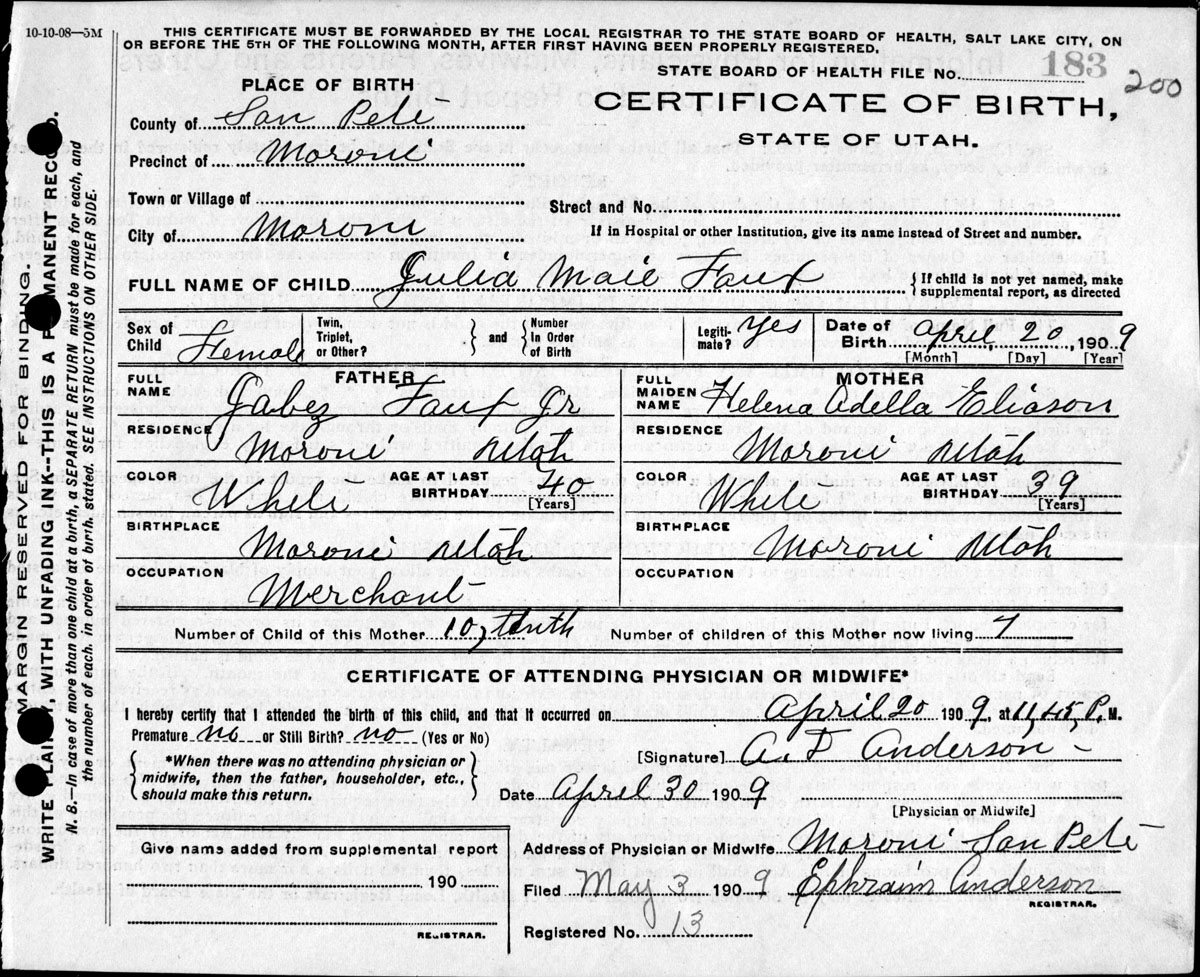 10-10-08—5M
THIS CERTIFICATE MUST BE FORWARDED BY THE LOCAL REGISTRAR TO THE STATE BOARD OF HEALTH, SALT LAKE CITY, ON
OR BEFORE THE 5TH OF THE FOLLOWING MONTH, AFTER FIRST HAVING BEEN PROPERLY REGISTERED.
STATE BOARD OF HEALTH FILE No. 183
200
PLACE OF BIRTH
CERTIFICATE OF BIRTH,
STATE OF UTAH.
County of San Pete
Precinct of Moroni
Town or Village of
Street and No.
City of Moroni
If in Hospital or other Institution, give its name instead of Street and number.
FULL NAME OF CHILD Julia Maie Faux { If child is not yet named, make
supplemental report, as directed
Sex of Child Female
Twin, Triplet, or Other? } and { Number In Order of Birth
Legiti-mate? Yes
Date of Birth April, 20, 1909
[Month] [Day] [Year]
FATHER
FULL NAME Jabez Faux Jr
RESIDENCE Moroni Utah
COLOR White AGE AT LAST BIRTHDAY 40 [Years]
BIRTHPLACE Moroni Utah
OCCUPATION Merchant
MOTHER
FULL MAIDEN NAME Helena Adella Eliason
RESIDENCE Moroni Utah
COLOR White AGE AT LAST BIRTHDAY 39 [Years]
BIRTHPLACE Moroni Utah
OCCUPATION
Number of Child of this Mother 10, tenth Number of children of this Mother now living 7
CERTIFICATE OF ATTENDING PHYSICIAN OR MIDWIFE*
I hereby certify that I attended the birth of this child, and that it occurred on April 20 1909, at 11,45, P. M.
Premature no or Still Birth? no (Yes or No)
[Signature] A. F Anderson
{ *When there was no attending physician or
midwife, then the father, householder, etc.,
should make this return. }
Date April 30 1909
[Physician or Midwife]
Give name added from supplemental report
190
REGISTRAR.
Address of Physician or Midwife Moroni San Pete
Filed May 3 1909 Ephraim Anderson
REGISTRAR.
Registered No. 13
MARGIN RESERVED FOR BINDING.
WRITE PLAINLY, WITH UNFADING INK--THIS IS A PERMANENT RECORD.
N. B.—In case of more than one child at a birth, a SEPARATE RETURN must be made for each, and
the number of each. in order of birth. stated. SEE INSTRUCTIONS ON OTHER SIDE.